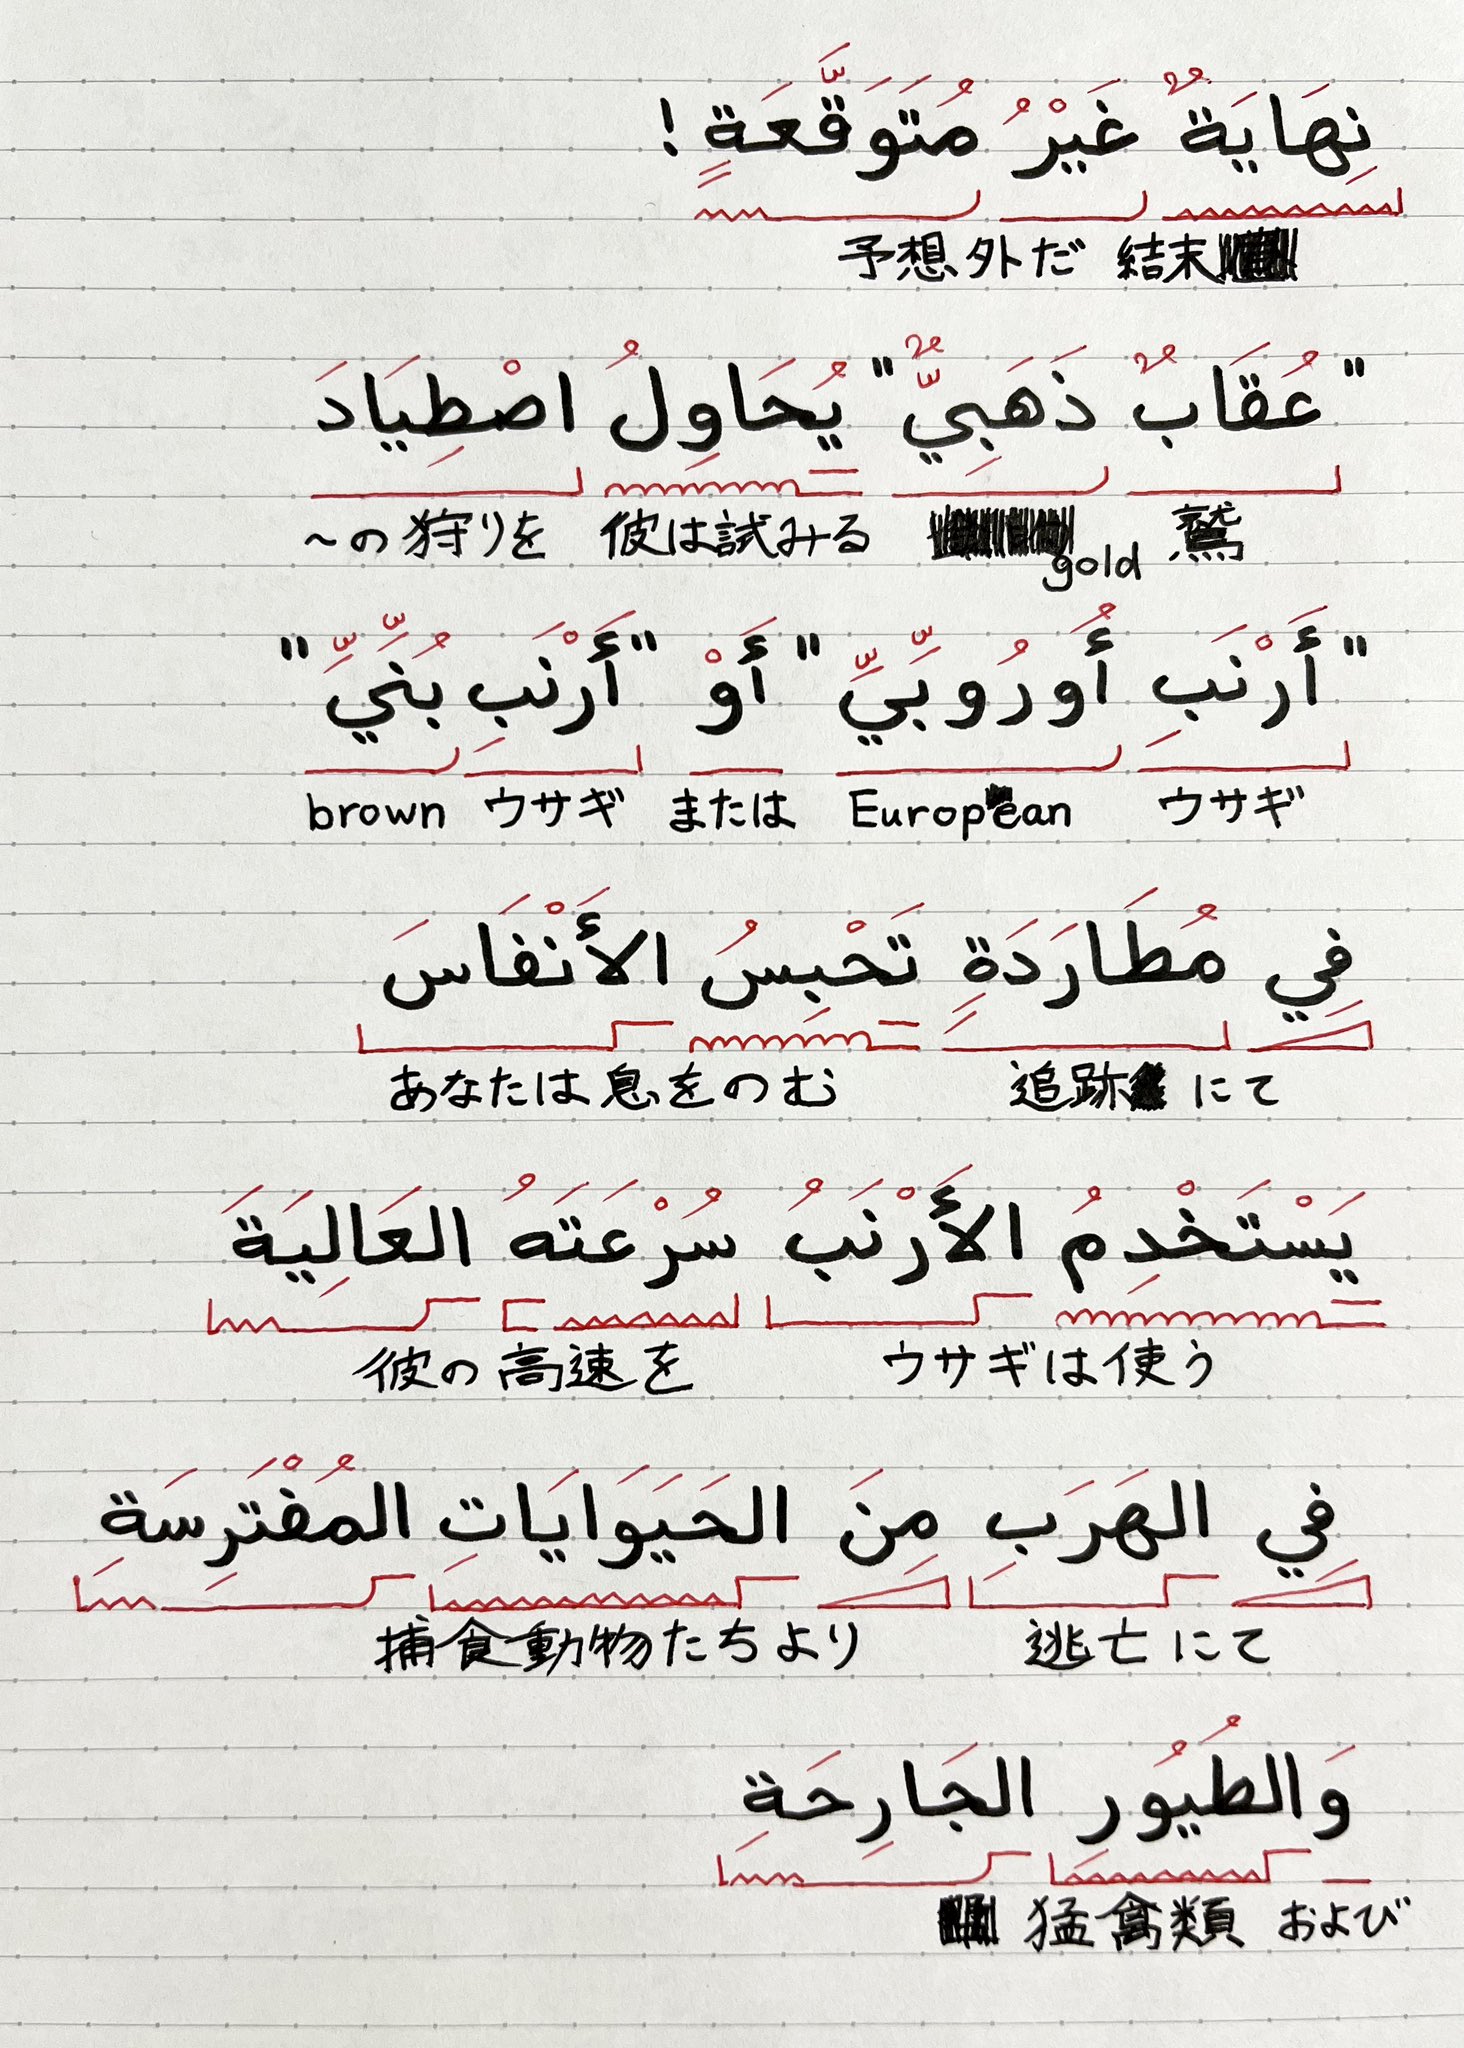 نِهَايَةٌ غَيْرُ مُتَوَقَّعَةٍ !
予想外だ 結末
"عُقَابٌ ذَهَبِيٌّ" يُحَاوِلُ اصْطِيَادَ
~の狩りを 彼は試みる gold 鷲
"أَرْنَبٍ أُورُوبِّيٍّ" أَوْ "أَرْنَبٍ بُنِّيٍّ"
brown ウサギ または European ウサギ
فِي مُطَارَدَةٍ تَحْبِسُ الأَنْفَاسَ
あなたは息をのむ 追跡にて
يَسْتَخْدِمُ الأَرْنَبُ سُرْعَتَهُ العَالِيَةَ
彼の高速を ウサギは使う
فِي الهَرَبِ مِنَ الحَيَوَايَاتِ المُفْتَرِسَةِ
捕食動物たちより 逃亡にて
وَالطُيُورِ الجَارِحَةِ
猛禽類 および